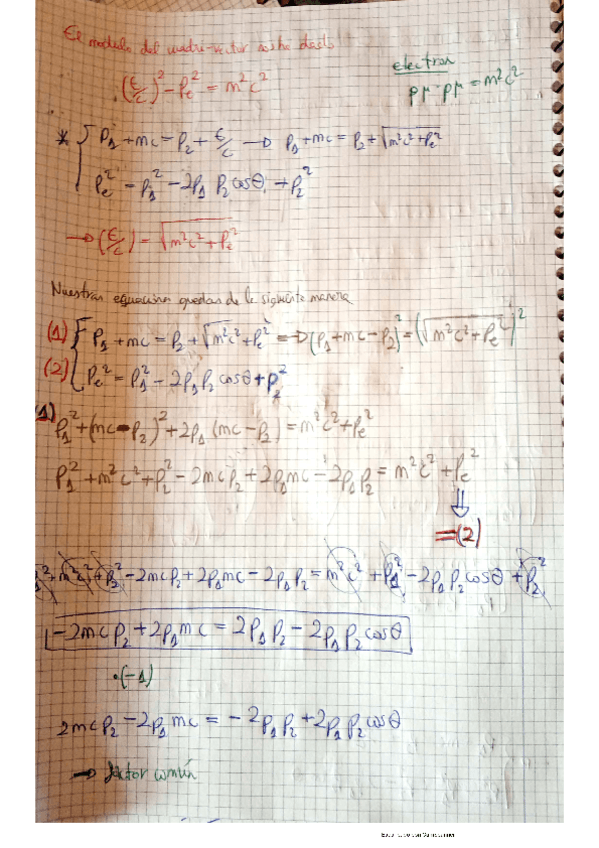 El modulo del cuadri-vector nos ha dado
(E/c)² - Pe² = m²c²
electron
pμ·pμ = m²c²
* { P₁ + mc = P₂ + E/c → P₁ + mc = P₂ + √(m²c² + Pe²)
Pe² = P₁² - 2P₁ P₂ cosθ + P₂²
→ (E/c) = √(m²c² + Pe²)
Nuestras equaciones quedan de la siguiente manera
(1) { P₁ + mc = P₂ + √(m²c² + Pe²) ⇒ (P₁ + mc - P₂)² = (√(m²c² + Pe²))²
(2) Pe² = P₁² - 2P₁P₂ cosθ + P₂²
1) P₁² + (mc - P₂)² + 2P₁ (mc - P₂) = m²c² + Pe²
P₁² + m²c² + P₂² - 2mcP₂ + 2P₁mc - 2P₁P₂ = m²c² + Pe²
⇓
=(2)
² + m²c² + P₂² - 2mcP₂ + 2P₁mc - 2P₁P₂ = m²c² + P₁² - 2P₁P₂cosθ + P₂²
-2mcP₂ + 2P₁mc = 2P₁P₂ - 2P₁P₂cosθ
·(-1)
2mcP₂ - 2P₁mc = -2P₁P₂ + 2P₁P₂cosθ
→ factor común